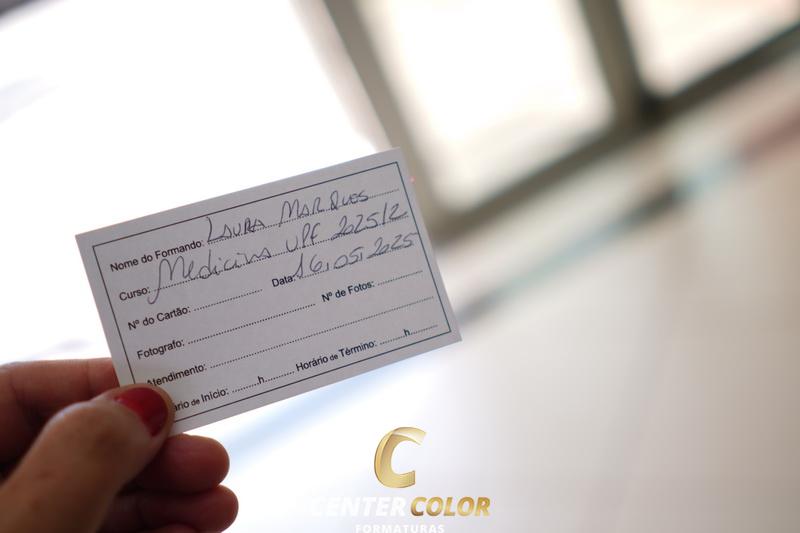 Nome do Formando: Laura Marques
Curso: Medicina UPF 2025/2
Nº do Cartão: Data: 16.05.2025
Fotografo: Nº de Fotos:
Atendimento:
ário de Inicio: h Horário de Término: h
C
CENTER COLOR
FORMATURAS